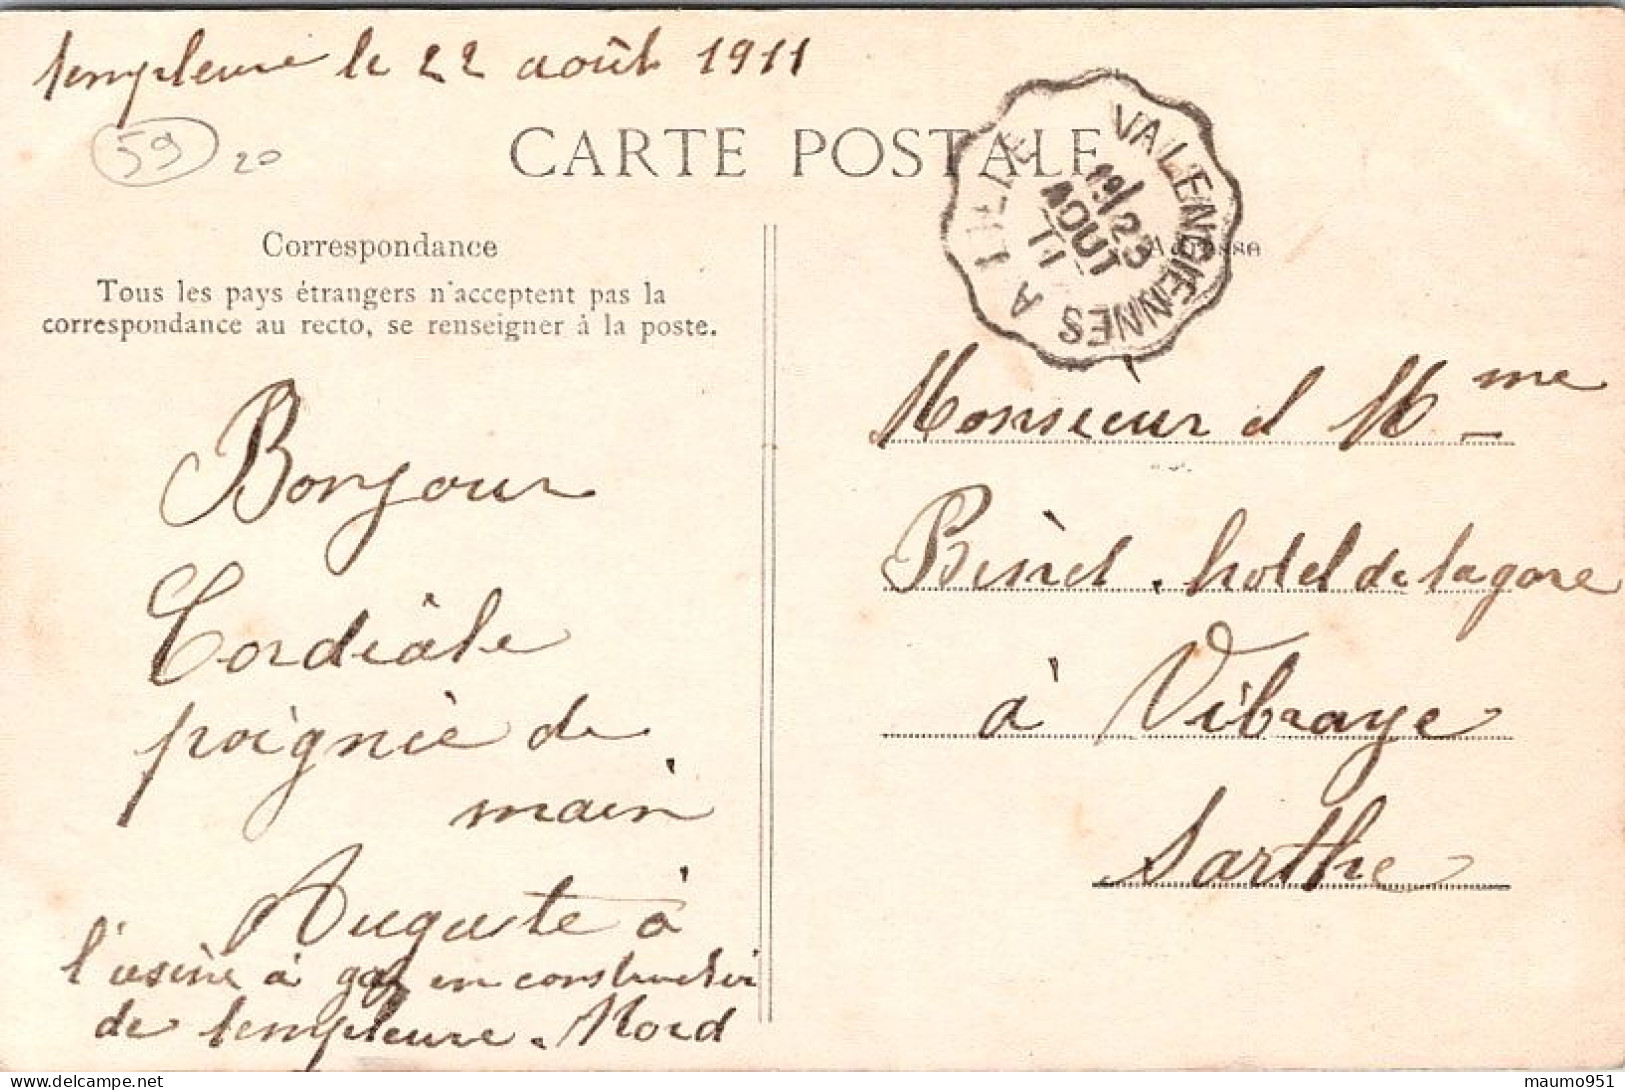 templeuve le 22 août 1911
59
20
CARTE POSTALE
VALENCIENNES A LILLE
19/23
AOUT
11
Correspondance
Tous les pays étrangers n'acceptent pas la
correspondance au recto, se renseigner à la poste.
Bonjour
Cordiale
poignée de
main
Auguste à
l'usine à gaz en construction
de templeuve. Nord
Adresse
Monsieur et Mme
hotel de la gare
à Vibraye
Sarthe
maumo951